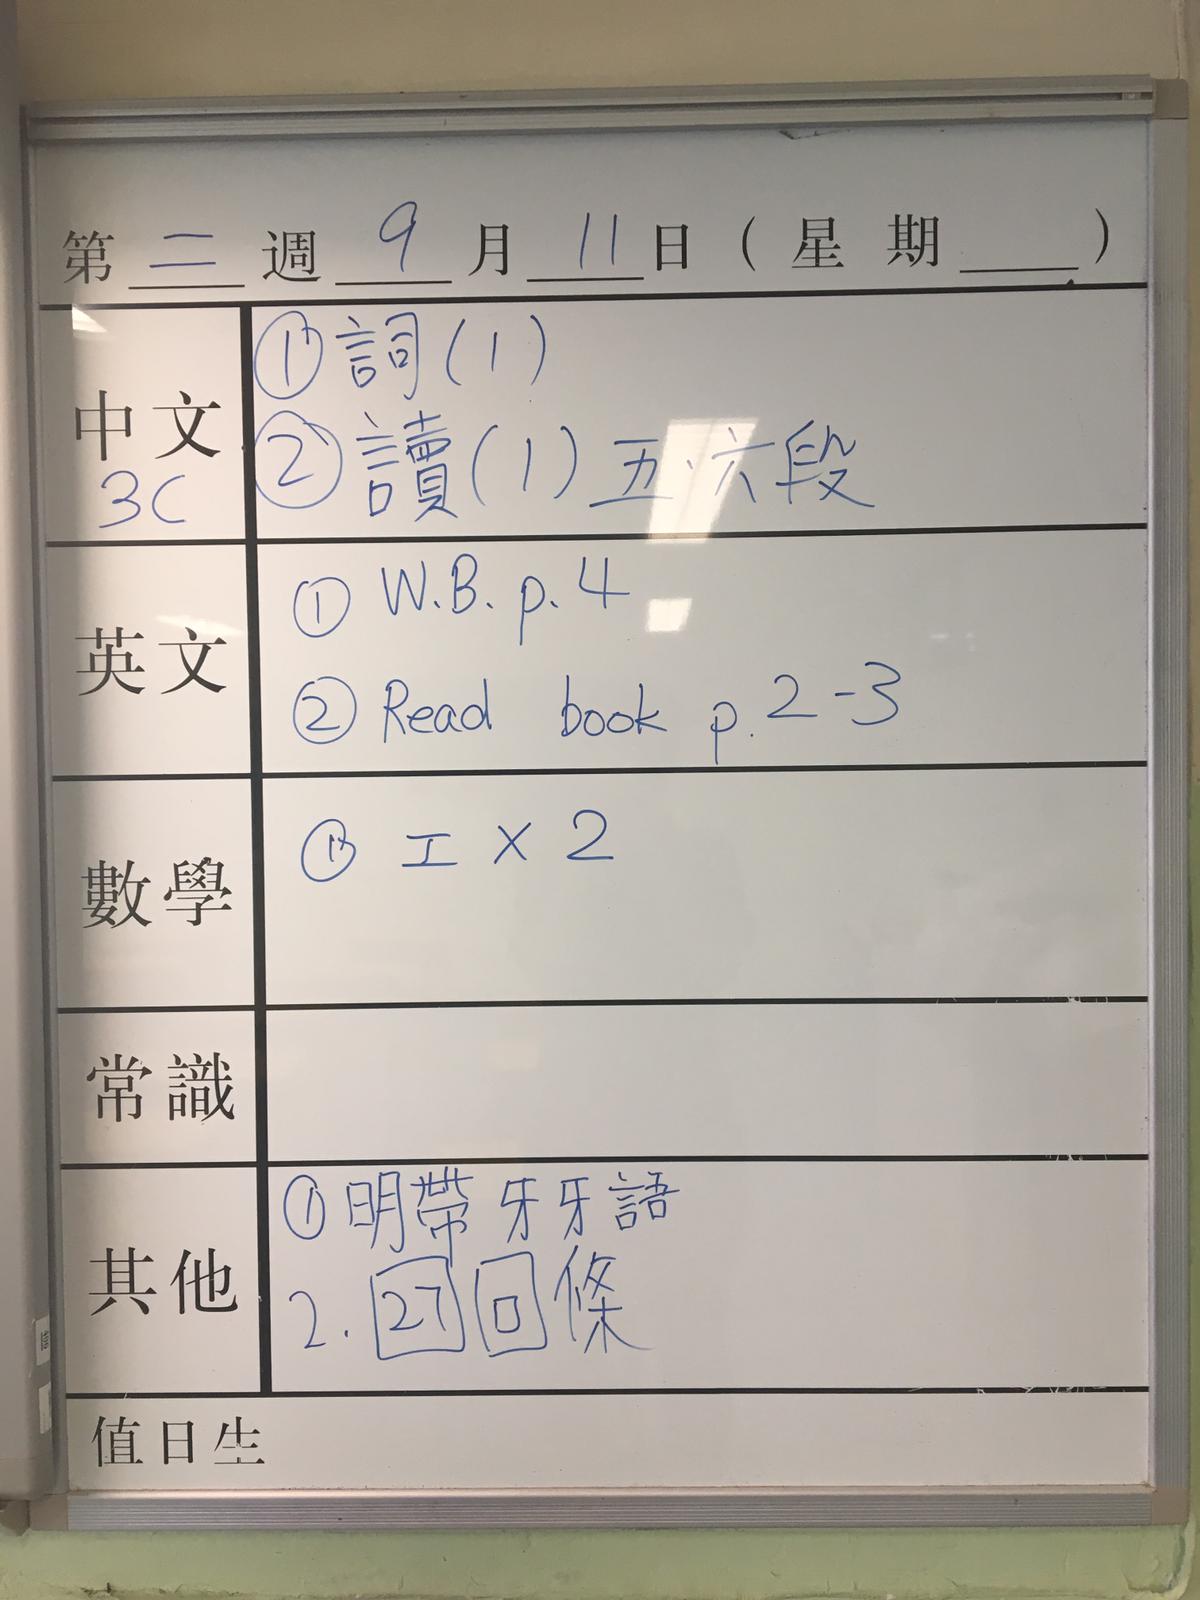 第 二 週 9 月 11 日 ( 星 期 ____ )
中文
3C
① 詞 (1)
② 讀 (1) 五、六段
英文
① W.B. p.4
② Read book p.2-3
數學
① 工 × 2
常識
其他
① 明帶 牙牙語
2. 27 回 條
值日生